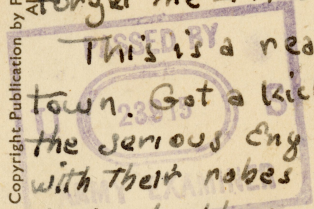 Copyright Publication by
forget me
This is a nea
town. Got a kic
the serious Eng
with their robes
PASSED BY
23613
ARMY EXAMINER